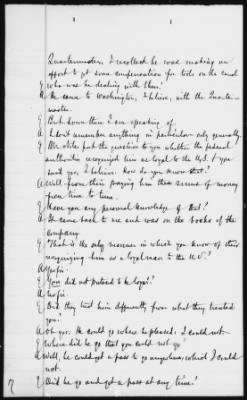 Quartermaster. I recollect he was making an
effort to get some compensation for tolls on the canal
Q who was he dealing with then?
A He came to Washington, I believe, with the Quarter-
master.
Q But down there I am speaking of.
A I don't remember anything in particular only generally.
Q Mr. put the question to you whether the federal
authorities recognized him as loyal to the U.S. & you
said yes, I believe. How do you know that?
A Well, from their paying him these sums of money
from time to time.
Q Have you any personal knowledge of that?
A It came back to me and was on the books of the
company.
Q That is the only manner in which you know of their
recognizing him as a loyal man to the U.S.?
A Yes sir.
Q You did not pretend to be loyal?
A No sir.
Q Did they treat him differently from what they treated
you?
A Oh yes. He could go where he pleased. I could not.
Q Where did he go that you could not go?
A Well, he could get a pass to go anywhere, which I could
not.
Q Did he go and get a pass at any time?